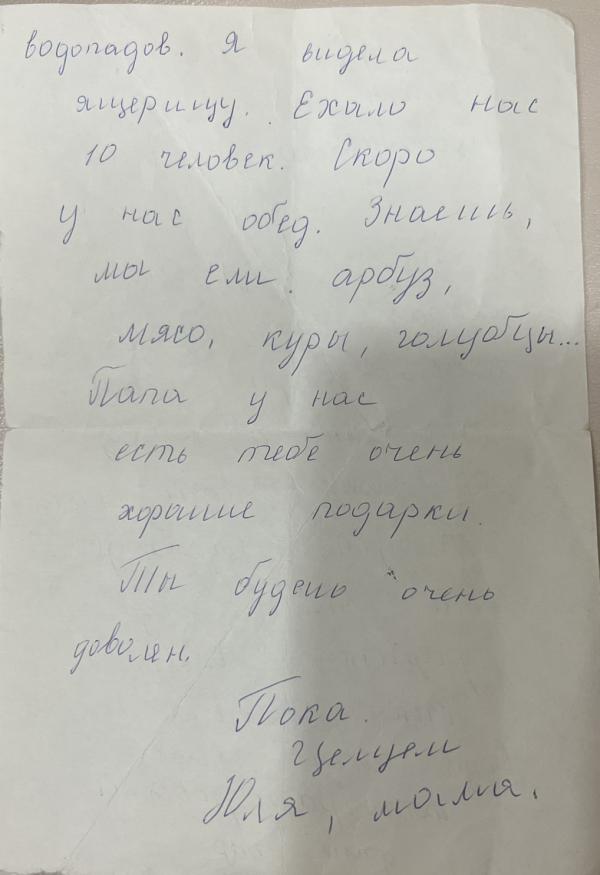 водопадов. Я видела
ящерицу. Ехало нас
10 человек. Скоро
у нас обед. Знаешь,
мы ели арбуз,
мясо, куры, голубцы...
Папа у нас
есть тебе очень
хорошие подарки.
Ты будешь очень
доволен.
Пока.
Целуем
Юля, мама.